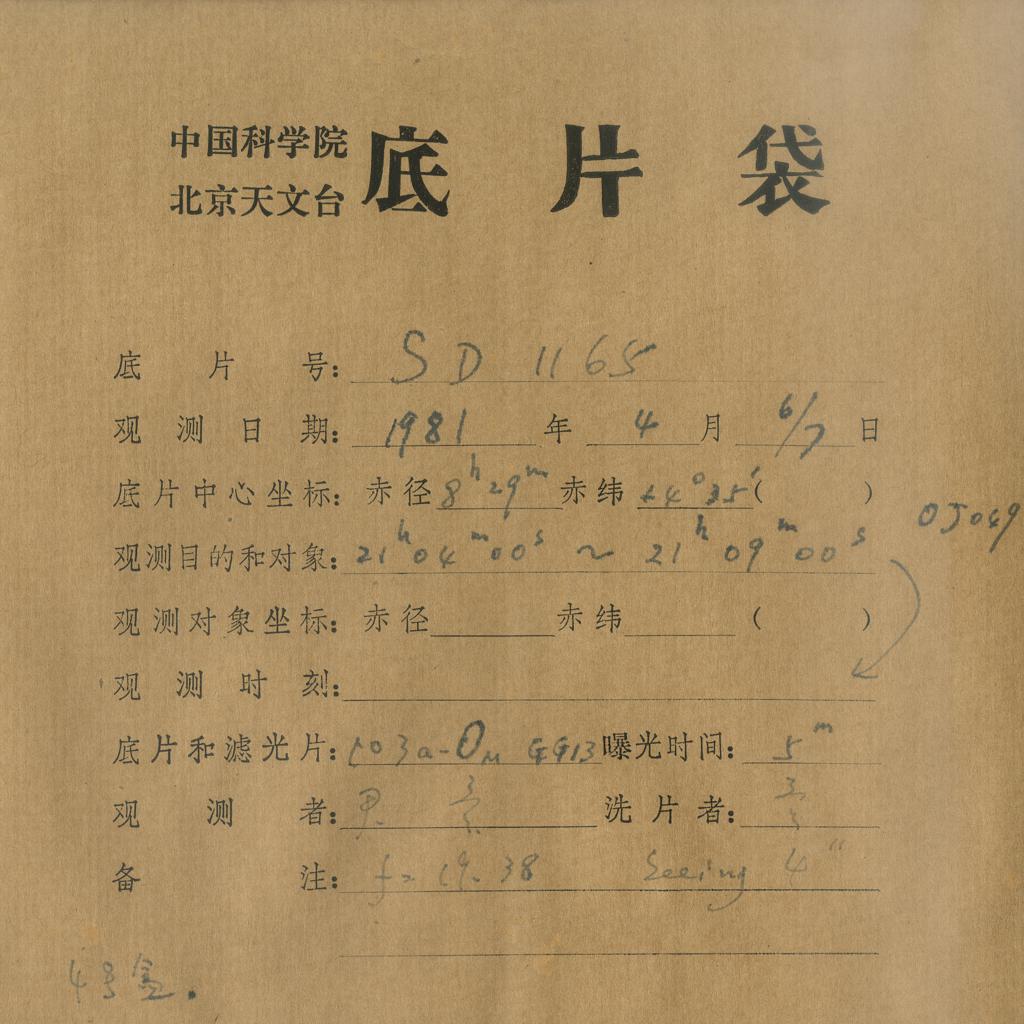 中国科学院
北京天文台
底片袋
底片号: SD 1165
观测日期: 1981年4月6/7日
底片中心坐标: 赤径8h29m赤纬+4°35′( )
OJ049
观测目的和对象: 21h04m00s ~ 21h09m00s
观测对象坐标: 赤径 赤纬 ( )
观测时刻:
底片和滤光片: 103a-O GG13曝光时间: 5m
观测者: 洗片者:
备注: f= 19.38 Seeing 4″
4号盒.